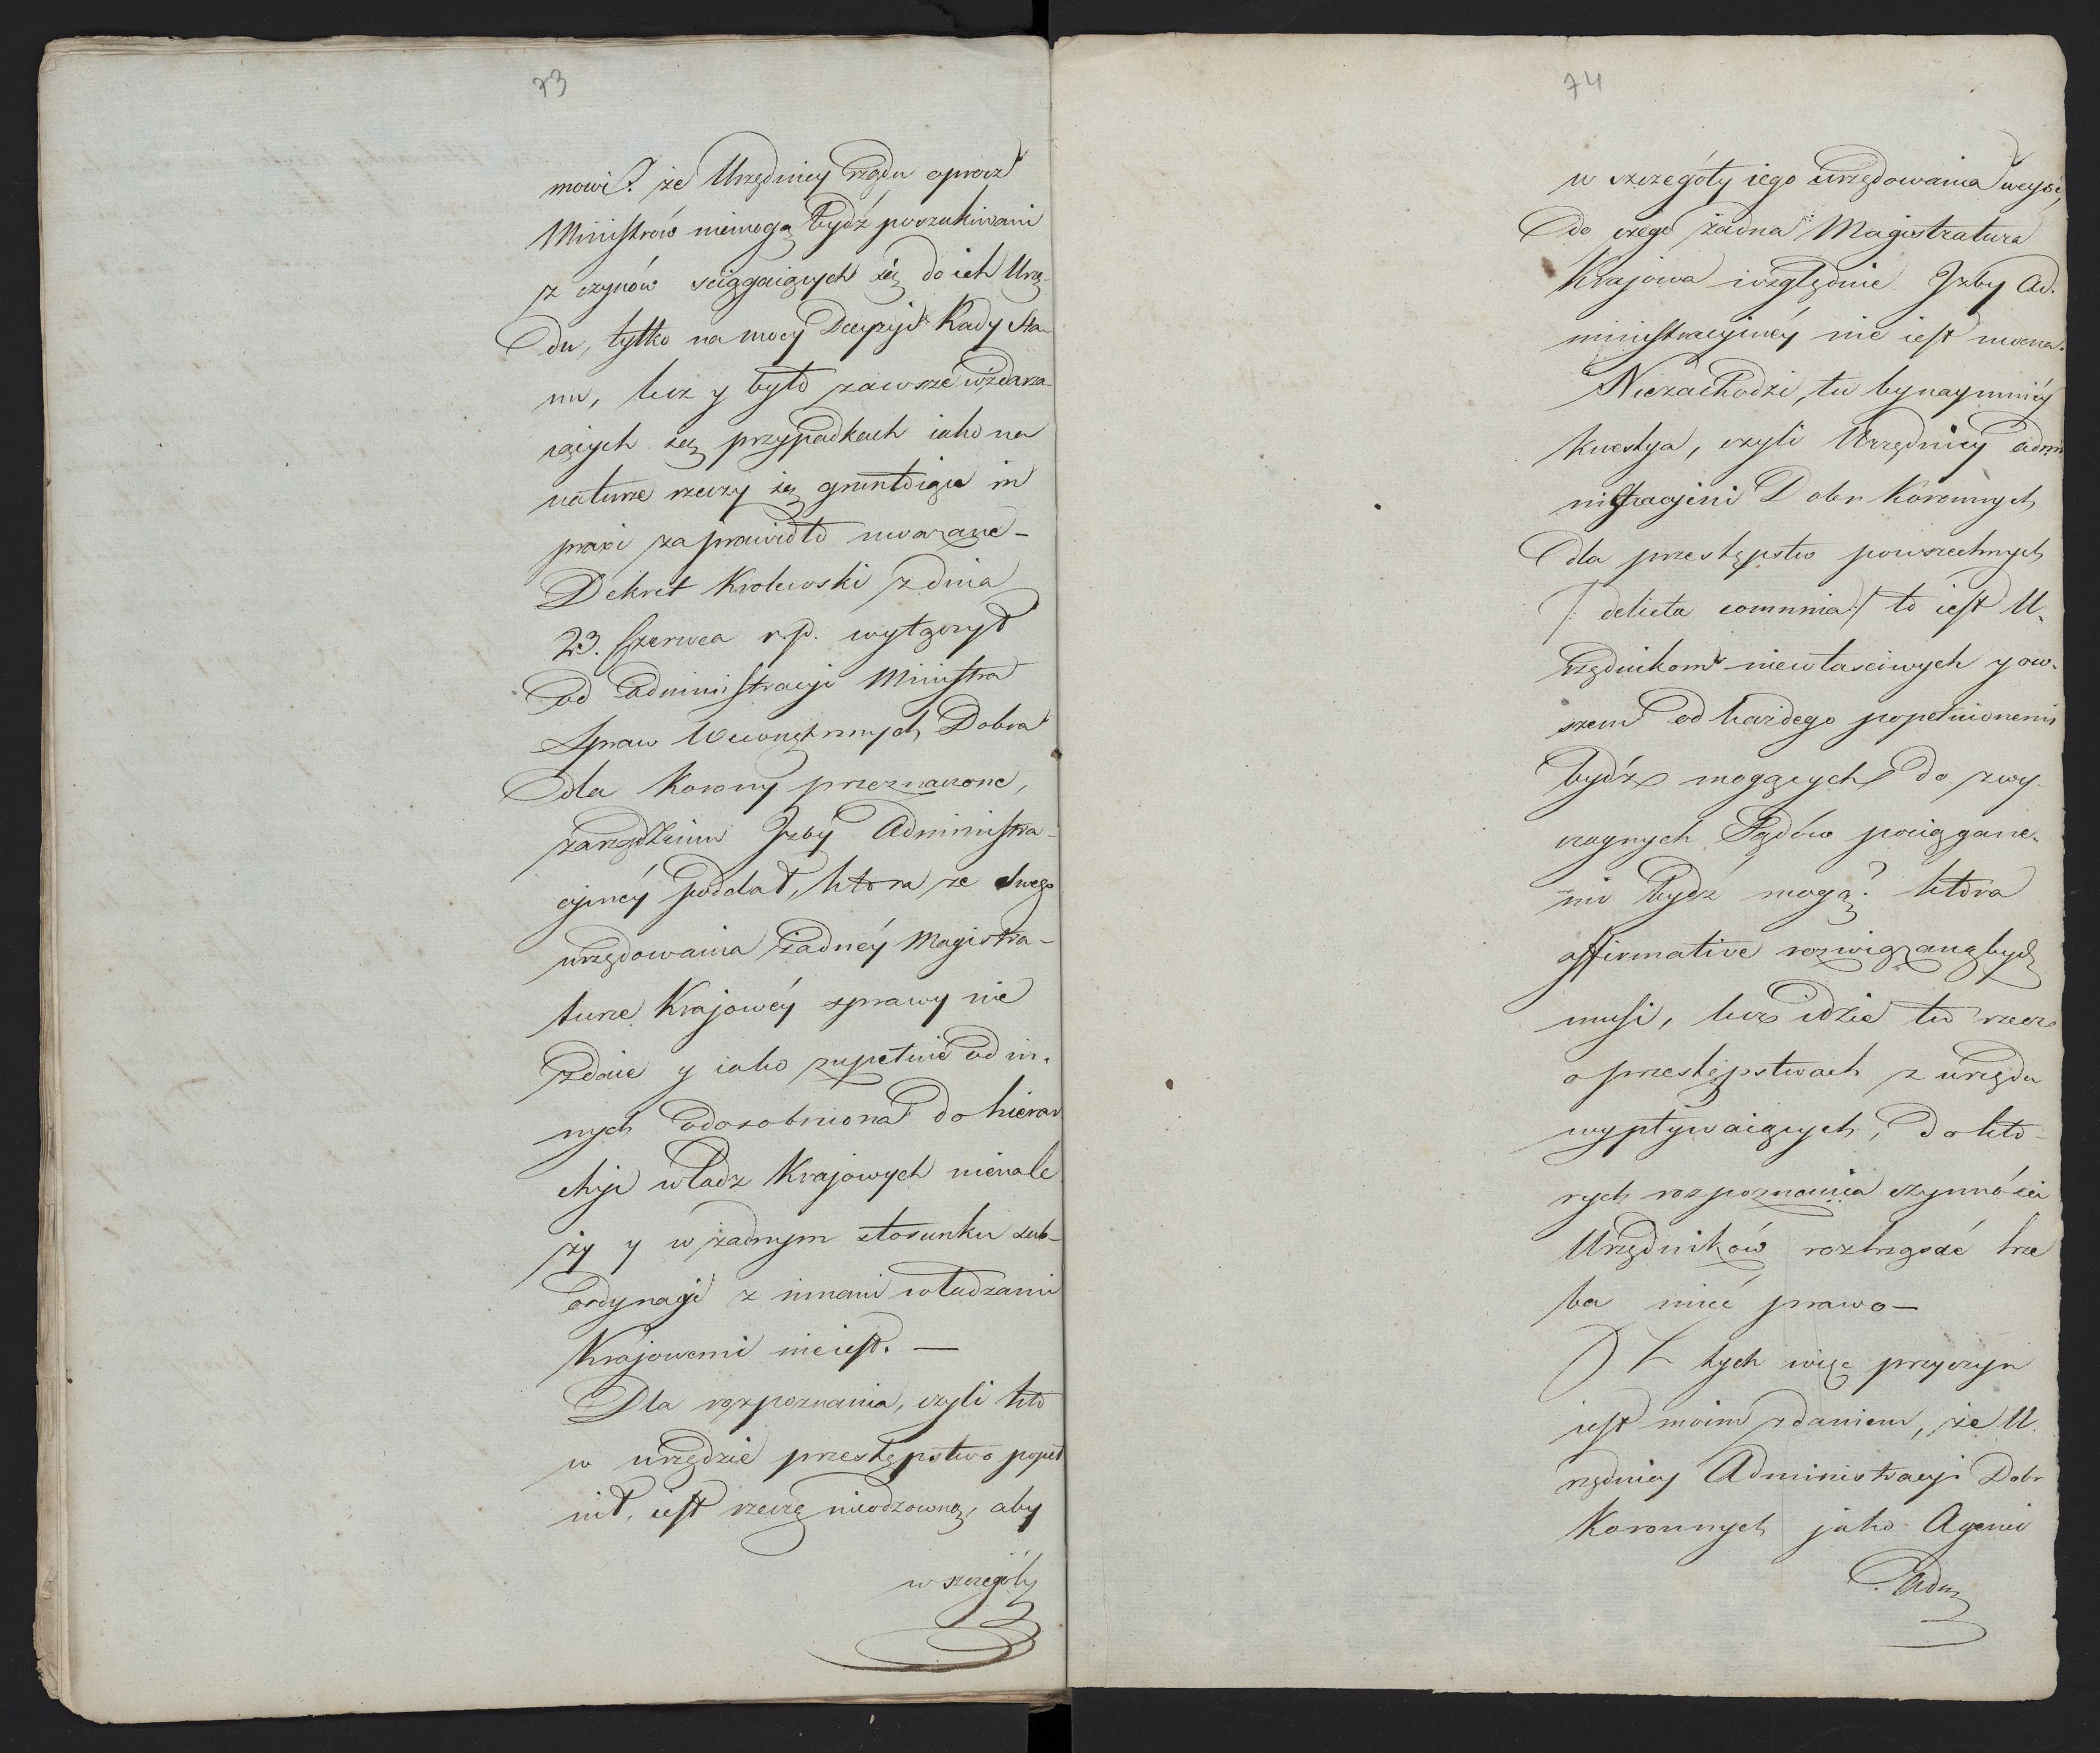 73
mowi? że Urzędnicy rządu oprocz
Ministrów niemogą bydź poszukiwani
z czynów sciągaiących się do ich Urzę-
du, tylko na mocy Decyzyi Rady Sta-
nu, lecz y było zawsze w zdarza-
iących się przypadkach iako na
naturze rzeczy się gruntuiące in
praxi za prawidło uważane –
Dekret Krolewski z dnia
23. Czerwca r. p. wyłączył
od administracyi Ministra
Spraw Wewnętrznych Dobra
dla Korony przeznaczone,
zarządzeniu Izby Administra-
cyiney poddał, ktora ze swego
urzędowania żadney Magistra-
turze Krajowey sprawy nie
zdaie y iako zupełnie od in-
nych odosobniona do hierar
chyi władz Krajowych nienale
ży y w żadnym stosunku sub-
ordynacyi z innemi władzami
Krajowemi nie iest. —
Dla rozpoznania, czyli kto
w urzędzie przestępstwo popeł
nił, iest rzeczą nieodzowną, aby
w szczegóły
74
w szczegóły iego urzędowania weyść,
do czego żadna Magistratura
Krajowa względnie Izby Ad-
ministracyiney nie iest mocna.
Niezachodzi, tu bynaymniey
kwestya, czyli Urzędnicy admi
nistracyini Dobr Koronnych
dla przestępstw powszechnych
/: delicta communia :/ to iest U-
rzędnikom niewłasciwych y ow-
szem od każdego popełnionemi
bydź mogących do zwy-
czaynych Sądów pociągane-
mi bydź mogą? ktora
affirmative rozwiązaną bydź
musi, lecz idzie tu rzecz
o przestępstwach z urzędu
wypływaiących, do kto-
rych rozpoznania czynności
Urzędników roztrząsać trze
ba mieć prawo —
Z tych więc przyczyn
iest moim zdaniem, że U-
rzędnicy Administracyi Dobr
Koronnych jako Agenci
Adm